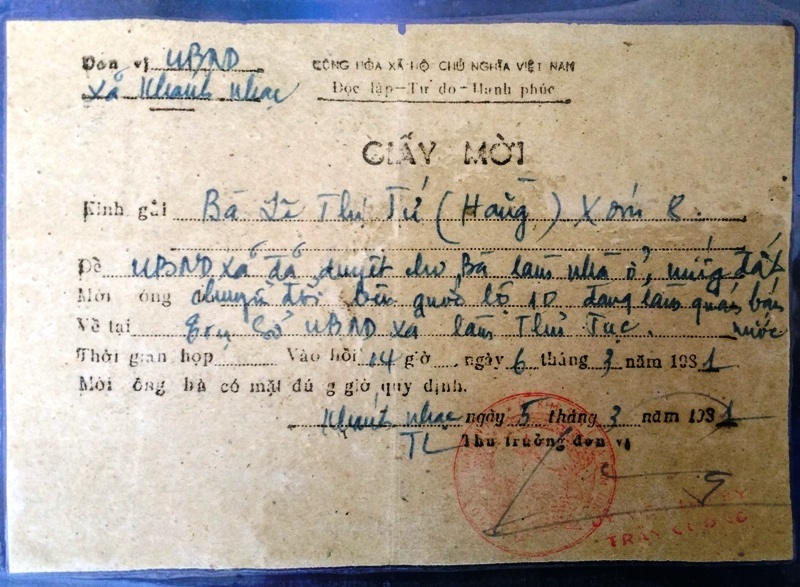 Đơn vị UBND
xã Khánh Nhạc
CỘNG HÒA XÃ HỘ CHỦ NGHĨA VIỆT NAM
Độc lập - Tự do - Hạnh phúc
GIẤY MỜI
Kính gửi Bà Lê Thị Tứ (Hoằng) Xóm 8.
Đề UBND xã đã duyệt cho Bà làm nhà ở, miếng đất
Mời ông chuyển đổi bên quốc lộ 10 đang làm quán bán
nước
Về tại Trụ Sở UBND xã làm Thủ Tục.
Thời gian họp Vào hồi 14 giờ ngày 6 tháng 3 năm 1981
Mời ông bà có mặt đú g giờ quy định.
Khánh Nhạc ngày 5 tháng 3 năm 1981
TL Thủ trưởng đơn vị